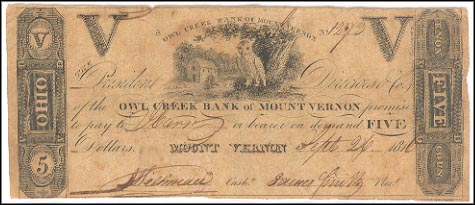 OWL CREEK BANK OF MOUNT VERNON
V V
No 1273
The President Directors & Co.
of the OWL CREEK BANK of MOUNT VERNON promise
to pay to or bearer on demand FIVE
Dollars. MOUNT VERNON Sept. 1816
Cash. James Smith Pres.
V
OHIO
5
FIVE